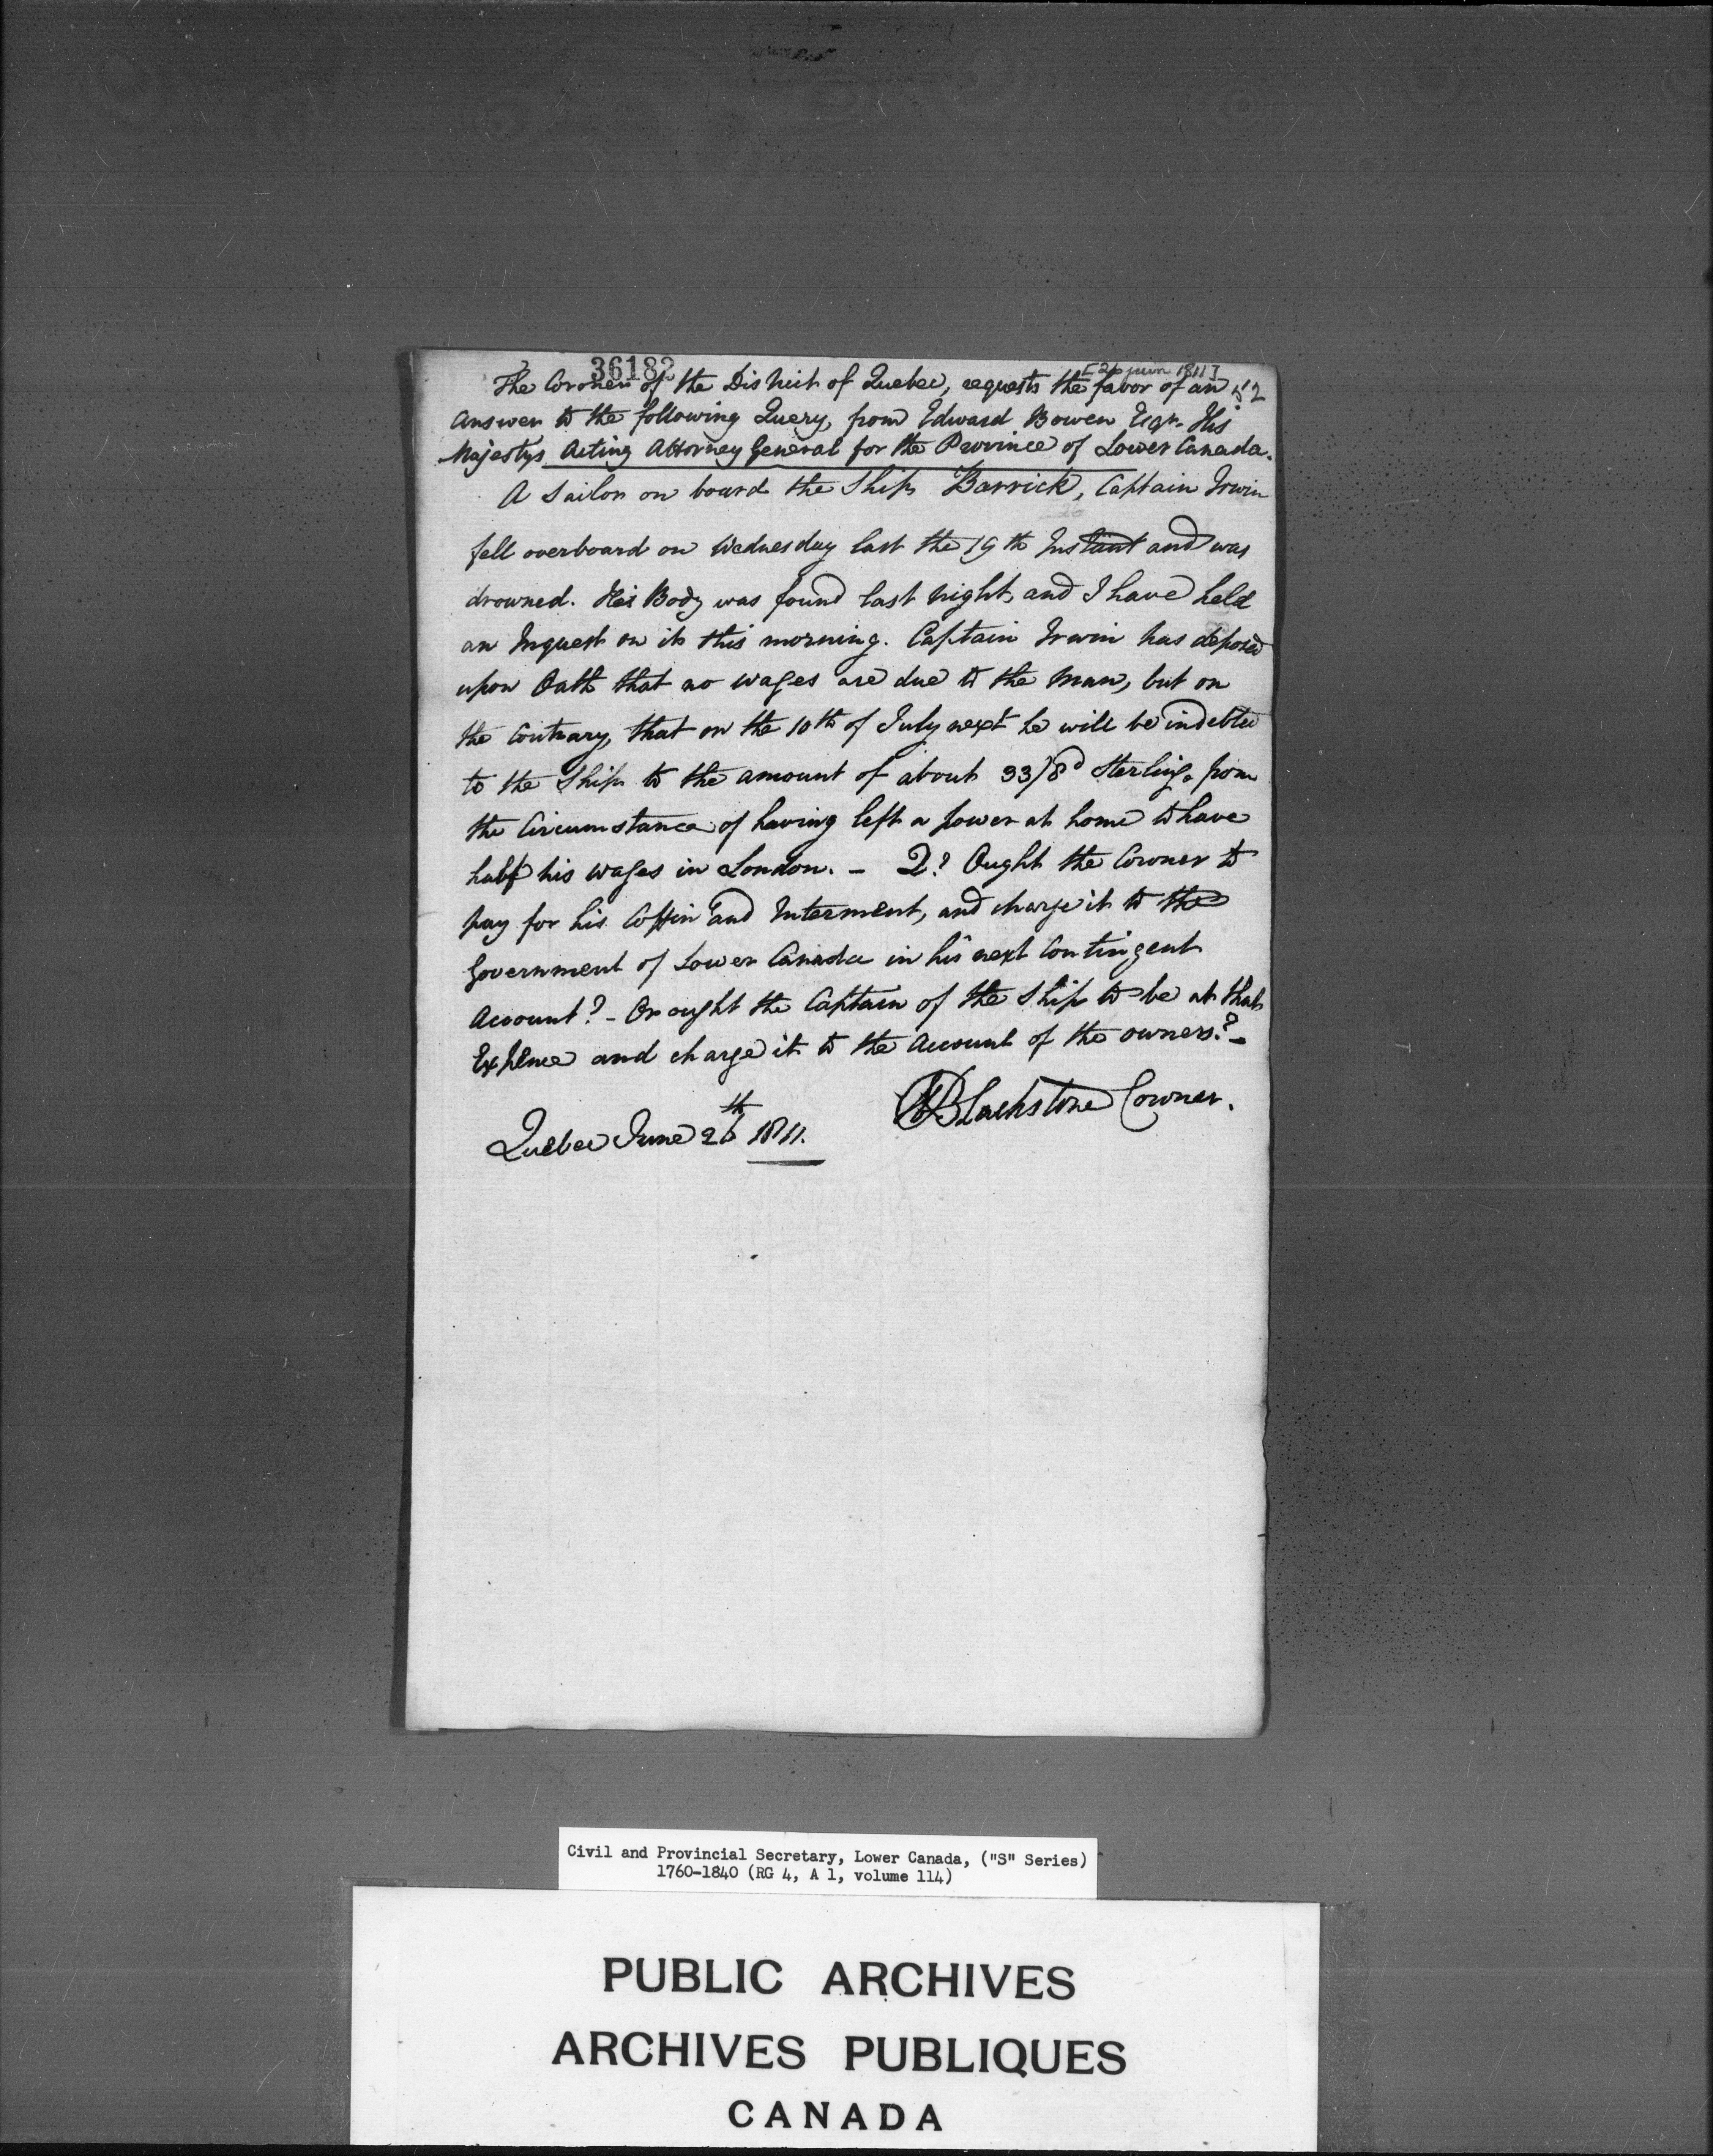 36182
[26 juin 1811]
The Coroner of the District of Quebec, requests the favor of an 52
answer to the following Query, from Edward Bowen Esqr. His
Majestys Acting Attorney General for the Province of Lower Canada.
A Sailor on board the Ship Barrick, Captain Irwin
fell overboard on Wednesday last the 19th Instant and was
drowned. His Body was found last night, and I have held
an Inquest on it this morning. Captain Irwin has deposed
upon Oath that no wages are due to the Man, but on
the Contrary, that on the 10th of July next he will be indebted
to the Ship to the amount of about 33/8d Sterling. from
the Circumstance of having left a power at home to have
half his wages in London. - Q? Ought the Coroner to
pay for his Coffin and Interment, and charge it to the
Government of Lower Canada in his next Contingent
Account? - Or ought the Captain of the Ship to be at that
Expence and charge it to the Account of the owners? -
Blackstone Coroner.
Quebec June 26th 1811.
Civil and Provincial Secretary, Lower Canada, ("S" Series)
1760-1840 (RG 4, A 1, volume 114)
PUBLIC ARCHIVES
ARCHIVES PUBLIQUES
CANADA